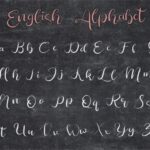 English Alphabet
a Bb Cc Dd Ee Ff
Hh Ii Jj Kk Ll M
Nn Oo Pp Qq Rr S
t Uu Vv Ww Xx Yy Z